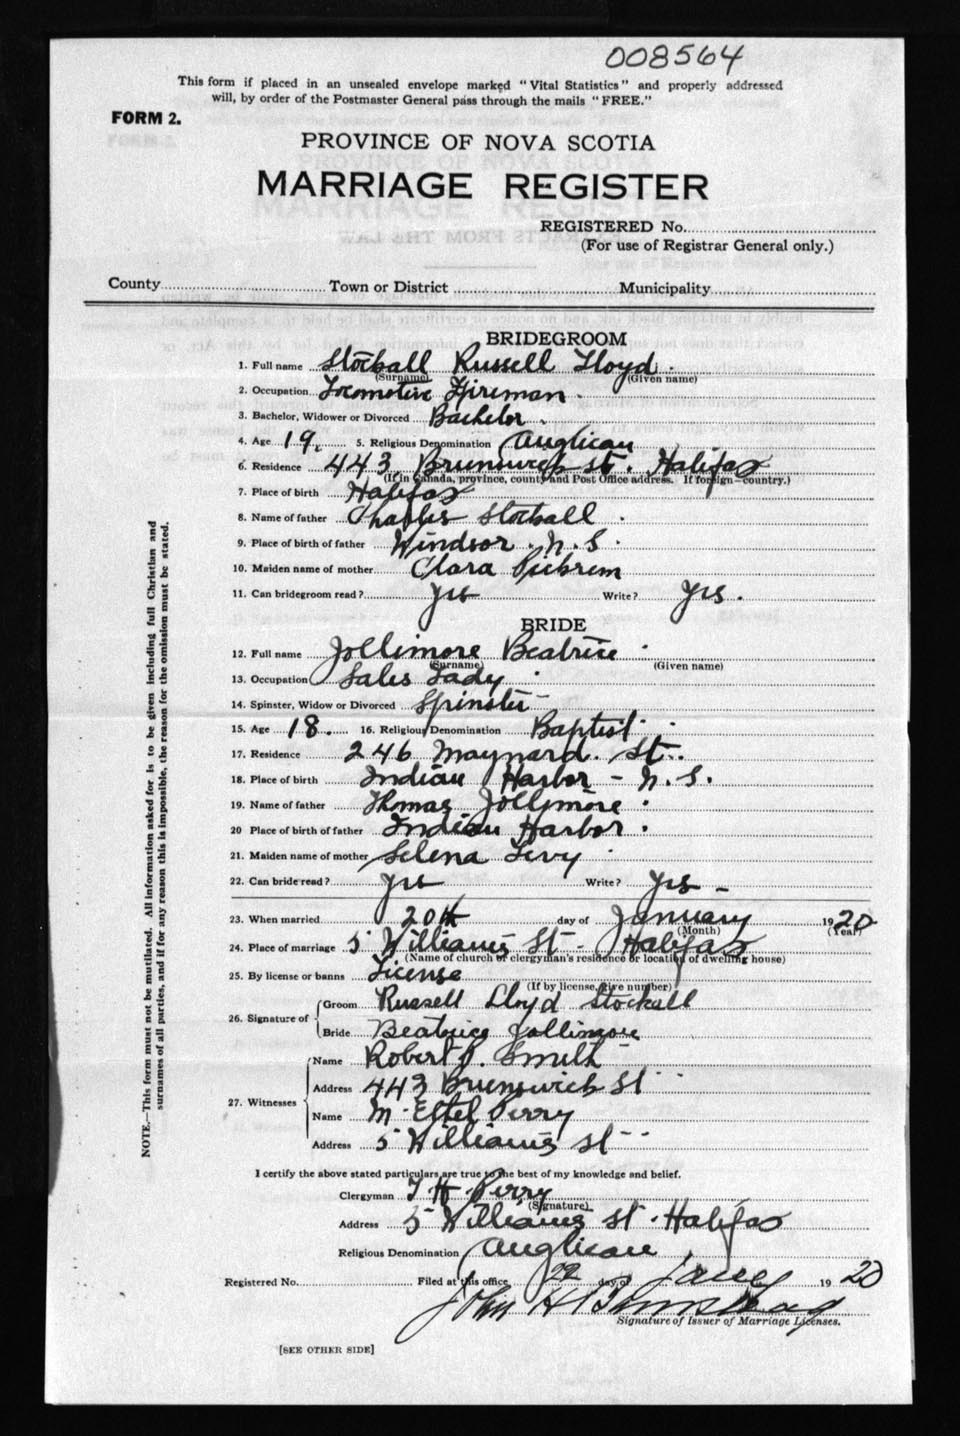 008564
This form if placed in an unsealed envelope marked "Vital Statistics" and properly addressed
will, by order of the Postmaster General pass through the mails "FREE."
FORM 2.
PROVINCE OF NOVA SCOTIA
MARRIAGE REGISTER
REGISTERED No.
(For use of Registrar General only.)
County Town or District Municipality
BRIDEGROOM
1. Full name Stockall Russell Lloyd
(Surname) (Given name)
2. Occupation Locomotive Fireman
3. Bachelor, Widower or Divorced Bachelor
4. Age 19. 5. Religious Denomination Anglican
6. Residence 443 Brunswick St. Halifax
(If in Canada, province, county and Post Office address. If foreign—country.)
7. Place of birth Halifax
8. Name of father Charles Stockall
9. Place of birth of father Windsor. N. S.
10. Maiden name of mother Clara
11. Can bridegroom read? Yes Write? Yes.
BRIDE
12. Full name Jollimore Beatrice
(Surname) (Given name)
13. Occupation Sales Lady
14. Spinster, Widow or Divorced Spinster
15. Age 18. 16. Religious Denomination Baptist
17. Residence 246 Maynard. St.
18. Place of birth Indian Harbor - N. S.
19. Name of father Thomas Jollymore
20 Place of birth of father Indian Harbor.
21. Maiden name of mother Selena Levy
22. Can bride read? Yes Write? Yes -
23. When married 20th day of January 1920
(Month) (Year)
24. Place of marriage 5 Williams St - Halifax
(Name of church or clergyman's residence or location of dwelling house)
25. By license or banns License
(If by license, give number)
26. Signature of Groom Russell Lloyd Stockall
Bride Beatrice Jollimore
27. Witnesses Name Robert J. Smith
Address 443 Brunswick St
Name M. Ethel Perry
Address 5 Williams St
I certify the above stated particulars are true to the best of my knowledge and belief.
Clergyman T H Perry
(Signature)
Address 5 Williams St. Halifax
Religious Denomination Anglican
Registered No. Filed at this office 22 day of Jany 1920
John H
Signature of Issuer of Marriage Licenses.
[SEE OTHER SIDE]
NOTE.—This form must not be mutilated. All information asked for is to be given including full Christian and
surnames of all parties, and if for any reason this is impossible, the reason for the omission must be stated.